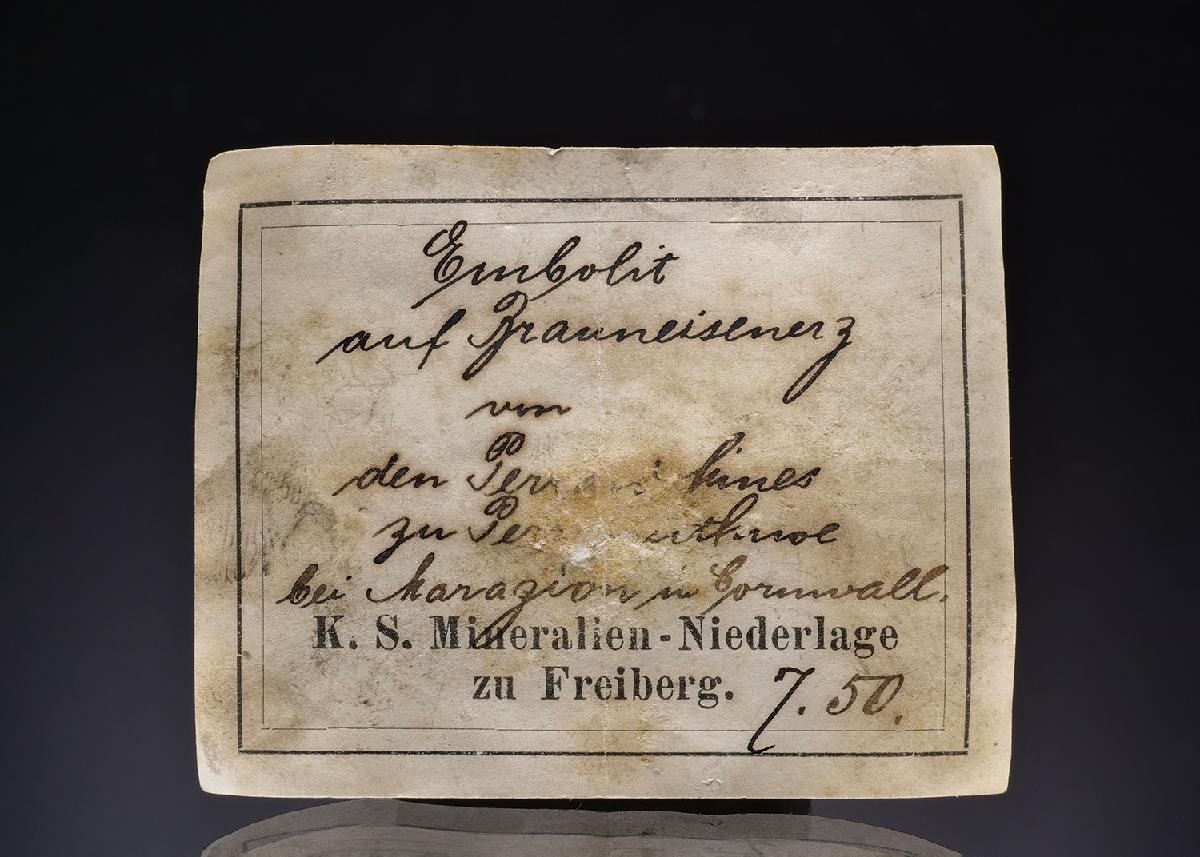 Embolit
auf Brauneisenerz
von
den
zu
bei Marazion in Cornwall.
K. S. Mineralien-Niederlage
zu Freiberg.
7.50.